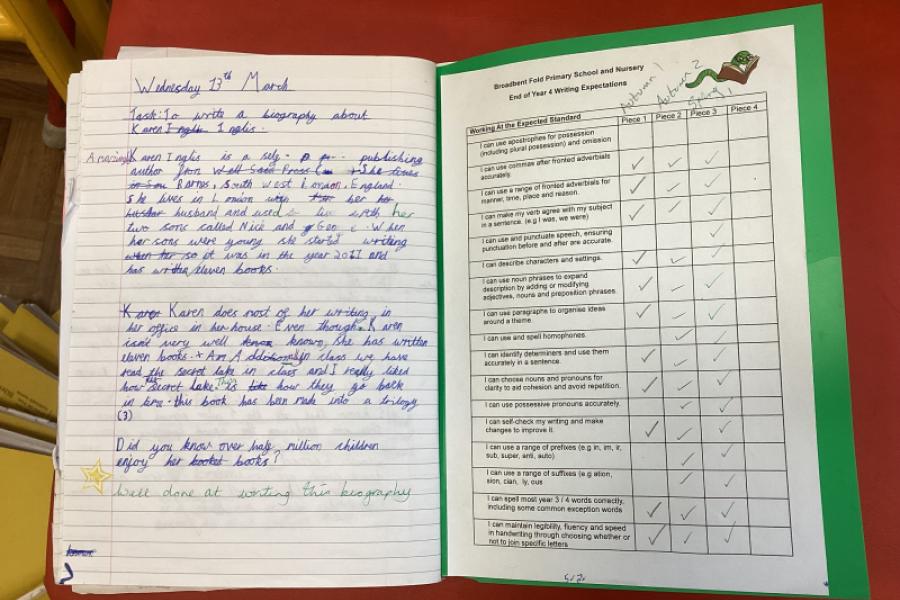 Wednesday 13th March
Task: To write a biography about
Karen Inglis.
Amazing Karen Inglis is a self publishing
author from Well Said Press She lives
in Barns, South West London, England.
She lives in London with her her
husband and used live with her
two sons called Nick and Geo. When
her sons were young she started writing
when her so it was in the year 2011 and
has written eleven books.
Karen Karen does most of her writing in
her office in her house. Even though Karen
isn't very well know known, she has written
eleven books. In class we have
read the secret lake in class and I really liked
how secret lake is how they go back
in time. this book has been made into a trilogy
(3)
Did you know over half million children
enjoy her books?
Well done at writing this biography
Broadbent Fold Primary School and Nursery
End of Year 4 Writing Expectations
Autumn 1
Autumn 2
Spring 1
Working At the Expected Standard
Piece 1
Piece 2
Piece 3
Piece 4
I can use apostrophes for possession
(including plural possession) and omission
I can use commas after fronted adverbials
accurately.
I can use a range of fronted adverbials for
manner, time, place and reason.
I can make my verb agree with my subject
in a sentence. (e.g I was, we were)
I can use and punctuate speech, ensuring
punctuation before and after are accurate.
I can describe characters and settings.
I can use noun phrases to expand
description by adding or modifying
adjectives, nouns and preposition phrases.
I can use paragraphs to organise ideas
around a theme.
I can use and spell homophones.
I can identify determiners and use them
accurately in a sentence.
I can choose nouns and pronouns for
clarity to aid cohesion and avoid repetition.
I can use possessive pronouns accurately.
I can self-check my writing and make
changes to improve it.
I can use a range of prefixes (e.g in, im, ir,
sub, super, anti, auto)
I can use a range of suffixes (e.g ation,
sion, cian, ly, ous
I can spell most year 3 / 4 words correctly,
including some common exception words
I can maintain legibility, fluency and speed
in handwriting through choosing whether or
not to join specific letters